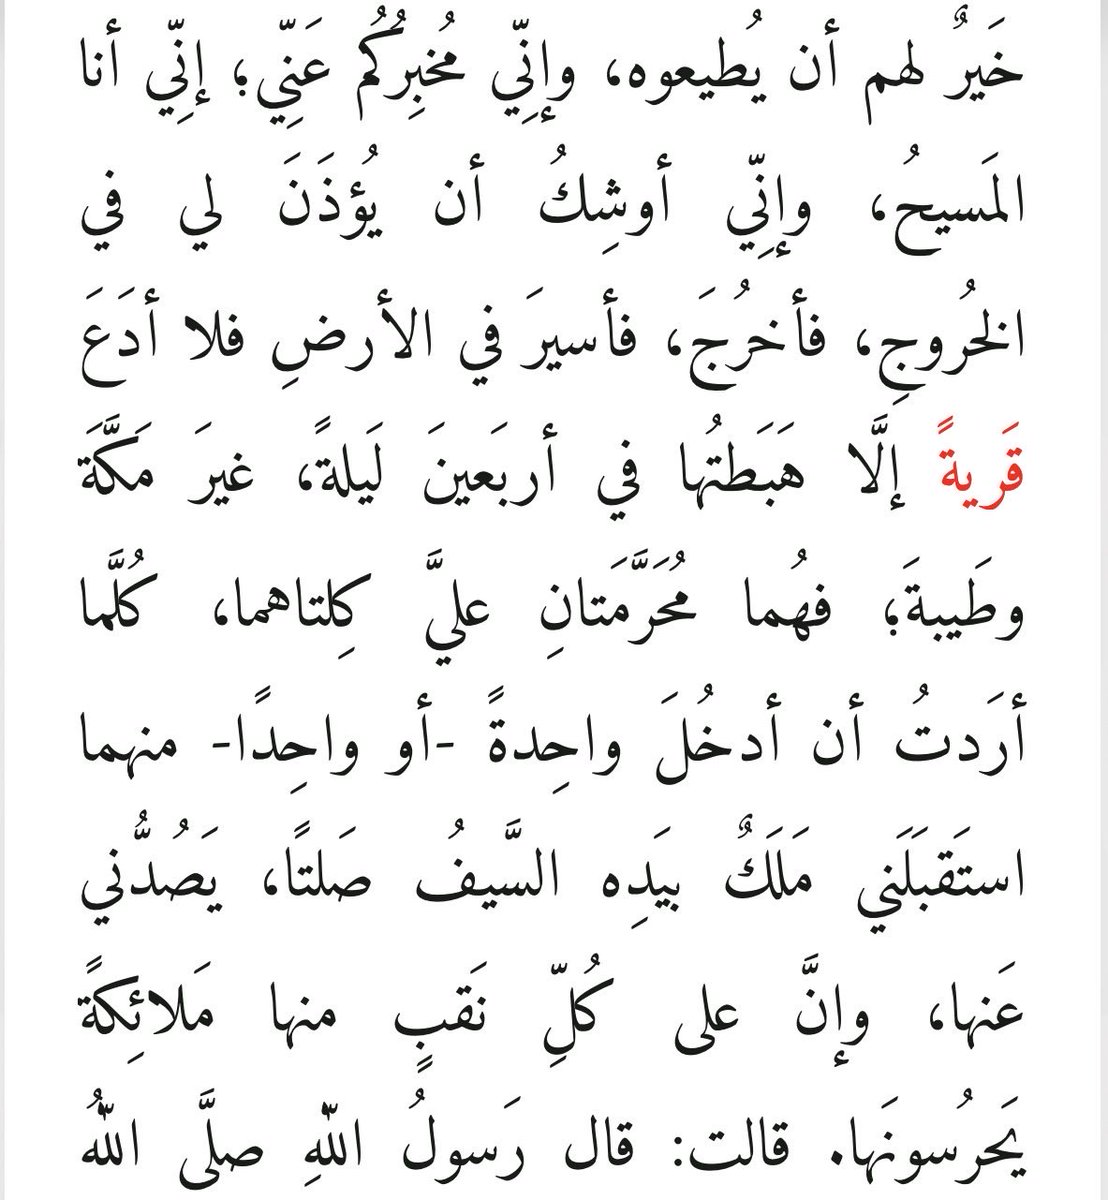 خَيرٌ لهم أن يُطيعوه، وإنِّي مُخبِرُكُم عَنِّي؛ إنِّي أنا
المَسيحُ، وإنِّي أُوشِكُ أن يُؤذَنَ لي في
الخُروجِ، فأخرُجَ، فأسيرَ في الأرضِ فلا أدَعَ
قَريةً إلَّا هَبَطتُها في أربَعينَ لَيلةً، غيرَ مَكَّةَ
وطَيبةَ؛ فهُما مُحَرَّمَتانِ عليَّ كِلتاهما، كُلَّما
أرَدتُ أن أدخُلَ واحِدةً -أو واحِدًا- منهما
استَقبَلَني مَلَكٌ بيَدِه السَّيفُ صَلتًا، يَصُدُّني
عَنها، وإنَّ على كُلِّ نَقبٍ منها مَلائِكةً
يَحرُسونَها. قالت: قال رَسولُ اللهِ صلَّى اللهُ